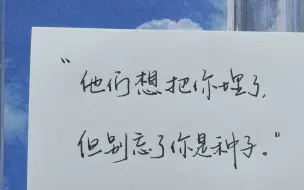 “他们想把你埋了，
但别忘了你是种子。”